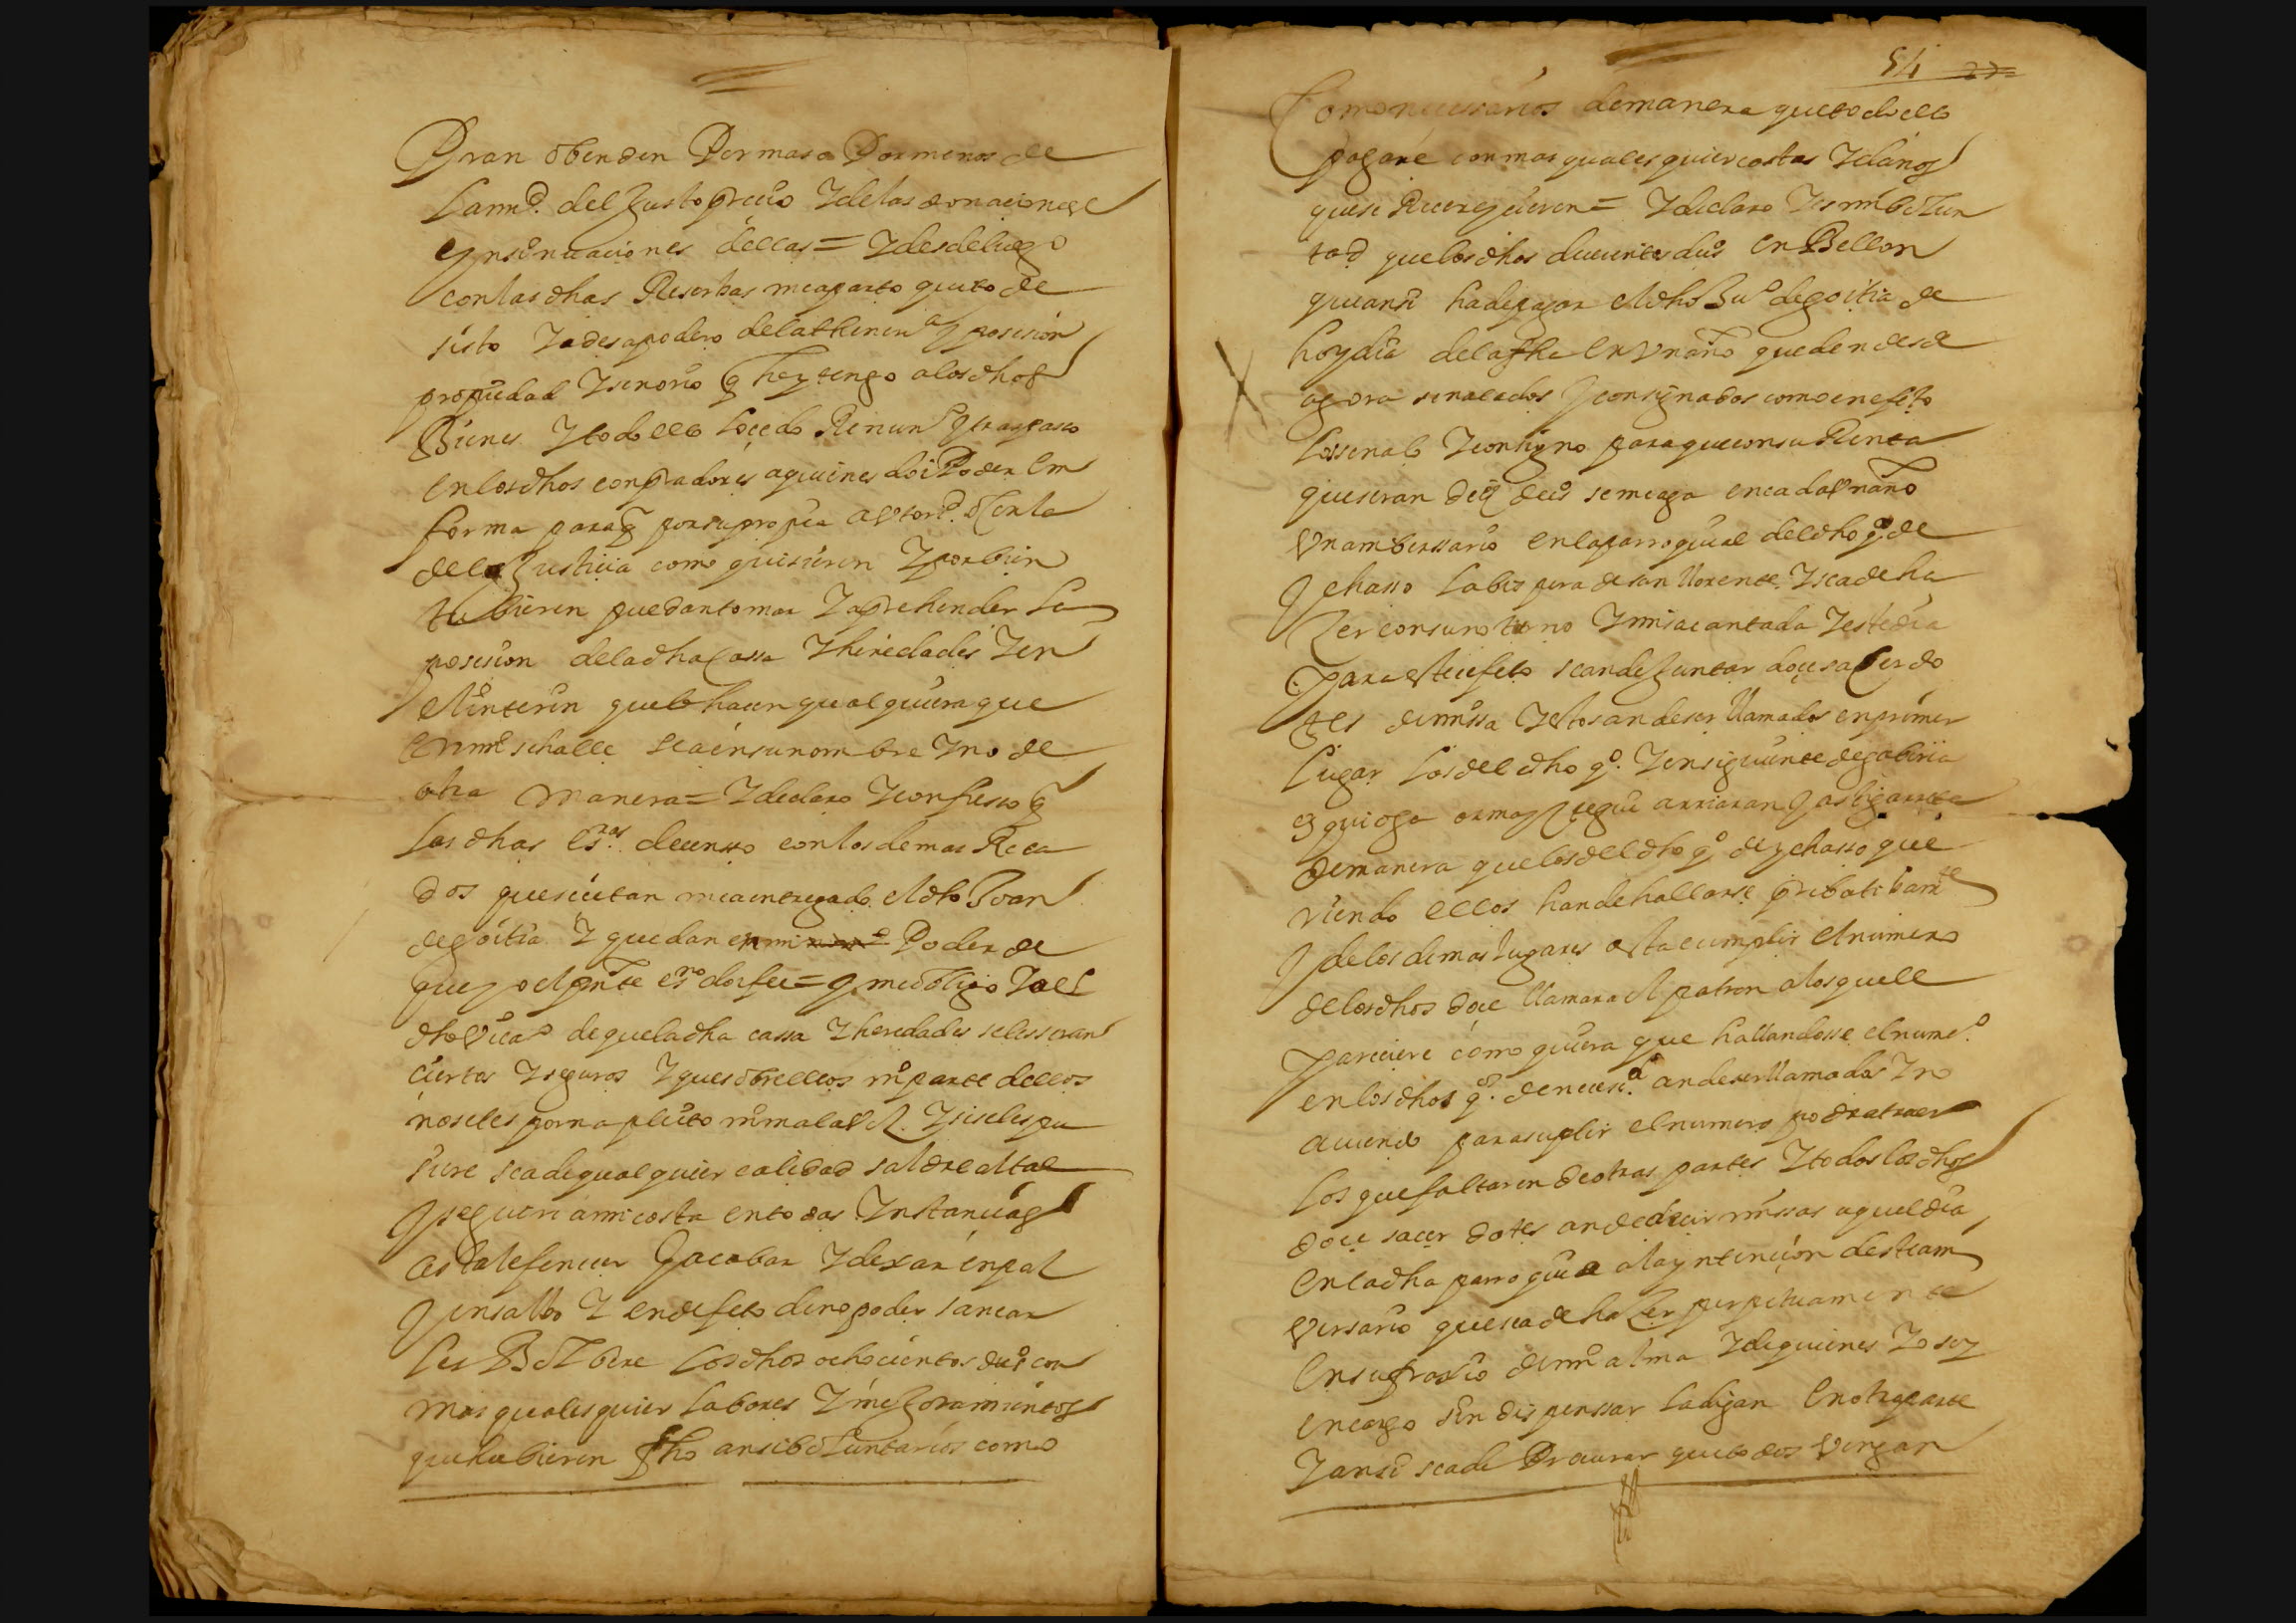 Pran o benden Por mas o Por menos de
la mid. del Justo preçio Y de las donaciones e
ynsinuaciones dellas = Y desde luego
con las dhas Reserbas me aparto quito de
sisto Y a desapodero de la thenen.a y posesion
propiedad Y senorio q hey tengo a los dhos
Bienes Y todo ello lo cedo Renun.o y traspasso
en los dhos conpradores a quienes doi Poder en
forma para q por su propia autorid. o con la
de la Justicia como quisieren Y por bien
tubieren puedan tomar Y aprehender la
posesion de la dha Cassa Y heredades Y en
el interin que lo hacen qualquiera que
en mi se halle sea en su nombre Y no de
otra manera = Y declaro Y confiesso q
las dhas es.ras de censso con los demas Reca
dos que se citan me a entregado el dho Joan
de goitia Y quedan en mi Poder de
que yo el pnte es.no doi fee = y me obligo Y al
dho Vica.o de que la dha cassa Y heredades se les seran
ciertos Y seguros Y que sobre ellos ni parte dellos
no se les porna pleito ni mala V.d. Y si se les pu
siere sea de qualquier calidad saldre al tal
y seguire a mi costa en todas Instancias
asta lefenecer y acabar Y dexar en paz
y en salbo Y en defeto de no poder sanear
les Bolbere los dhos ochocientos du.s con
mas qualesquier labores Y mejoramientos
que hubieren fho ansi boluntarios como
54
Como necessarios de manera que todo ello
pagare con mas qualesquier costas Y danos
que se Recrezcieren = Y declaro Y es mi bolun
tad que los dhos ducientos du.s en Bellon
que ansi ha de pagar el dho Ju.o de goitia de
hoy dia de la fha en un año queden desde
agora senalados y consignados como en efeto
los senalo Y consigno para que con su Renta
que seran diez du.s se me aga en cada un año
un anibersario en la parroquial del dho g.o de
ychasso la bispera de san llorente. Y se a de ha
Zer con su noturno Y misa cantada Y este dia
Para este efeto se an de Juntar doçe saçerdo
tes de missa Y estos an de ser llamados en primer
lugar los del dho g.o Y en siguiente de gabiria
ezquioga ormaiztegui arriaran y astigarreta
de manera que los del dho g.o de ychasso que
riendo ellos han de hallarse pribatibam.te
y de los demas lugares asta cumplir el numero
de los dhos doçe llamara el patron a los que le
pareciere como quiera que hallandosse el nume.o
en los dhos g.os de necesi.d an de ser llamados Y no
aviendo para suplir el numero podra traer
los que faltaren de otras partes Y todos los dhos
doçe sacerdotes an de decir missas aquel dia
en la dha parroquia a la yntencion deste ani
versario que se a de haZer perpetuamente
en sufragio de mi alma Y de quienes Yo soy
en cargo sin dispenssar la digan en otra parte
Y ansi se a de Procurar que todos vengan